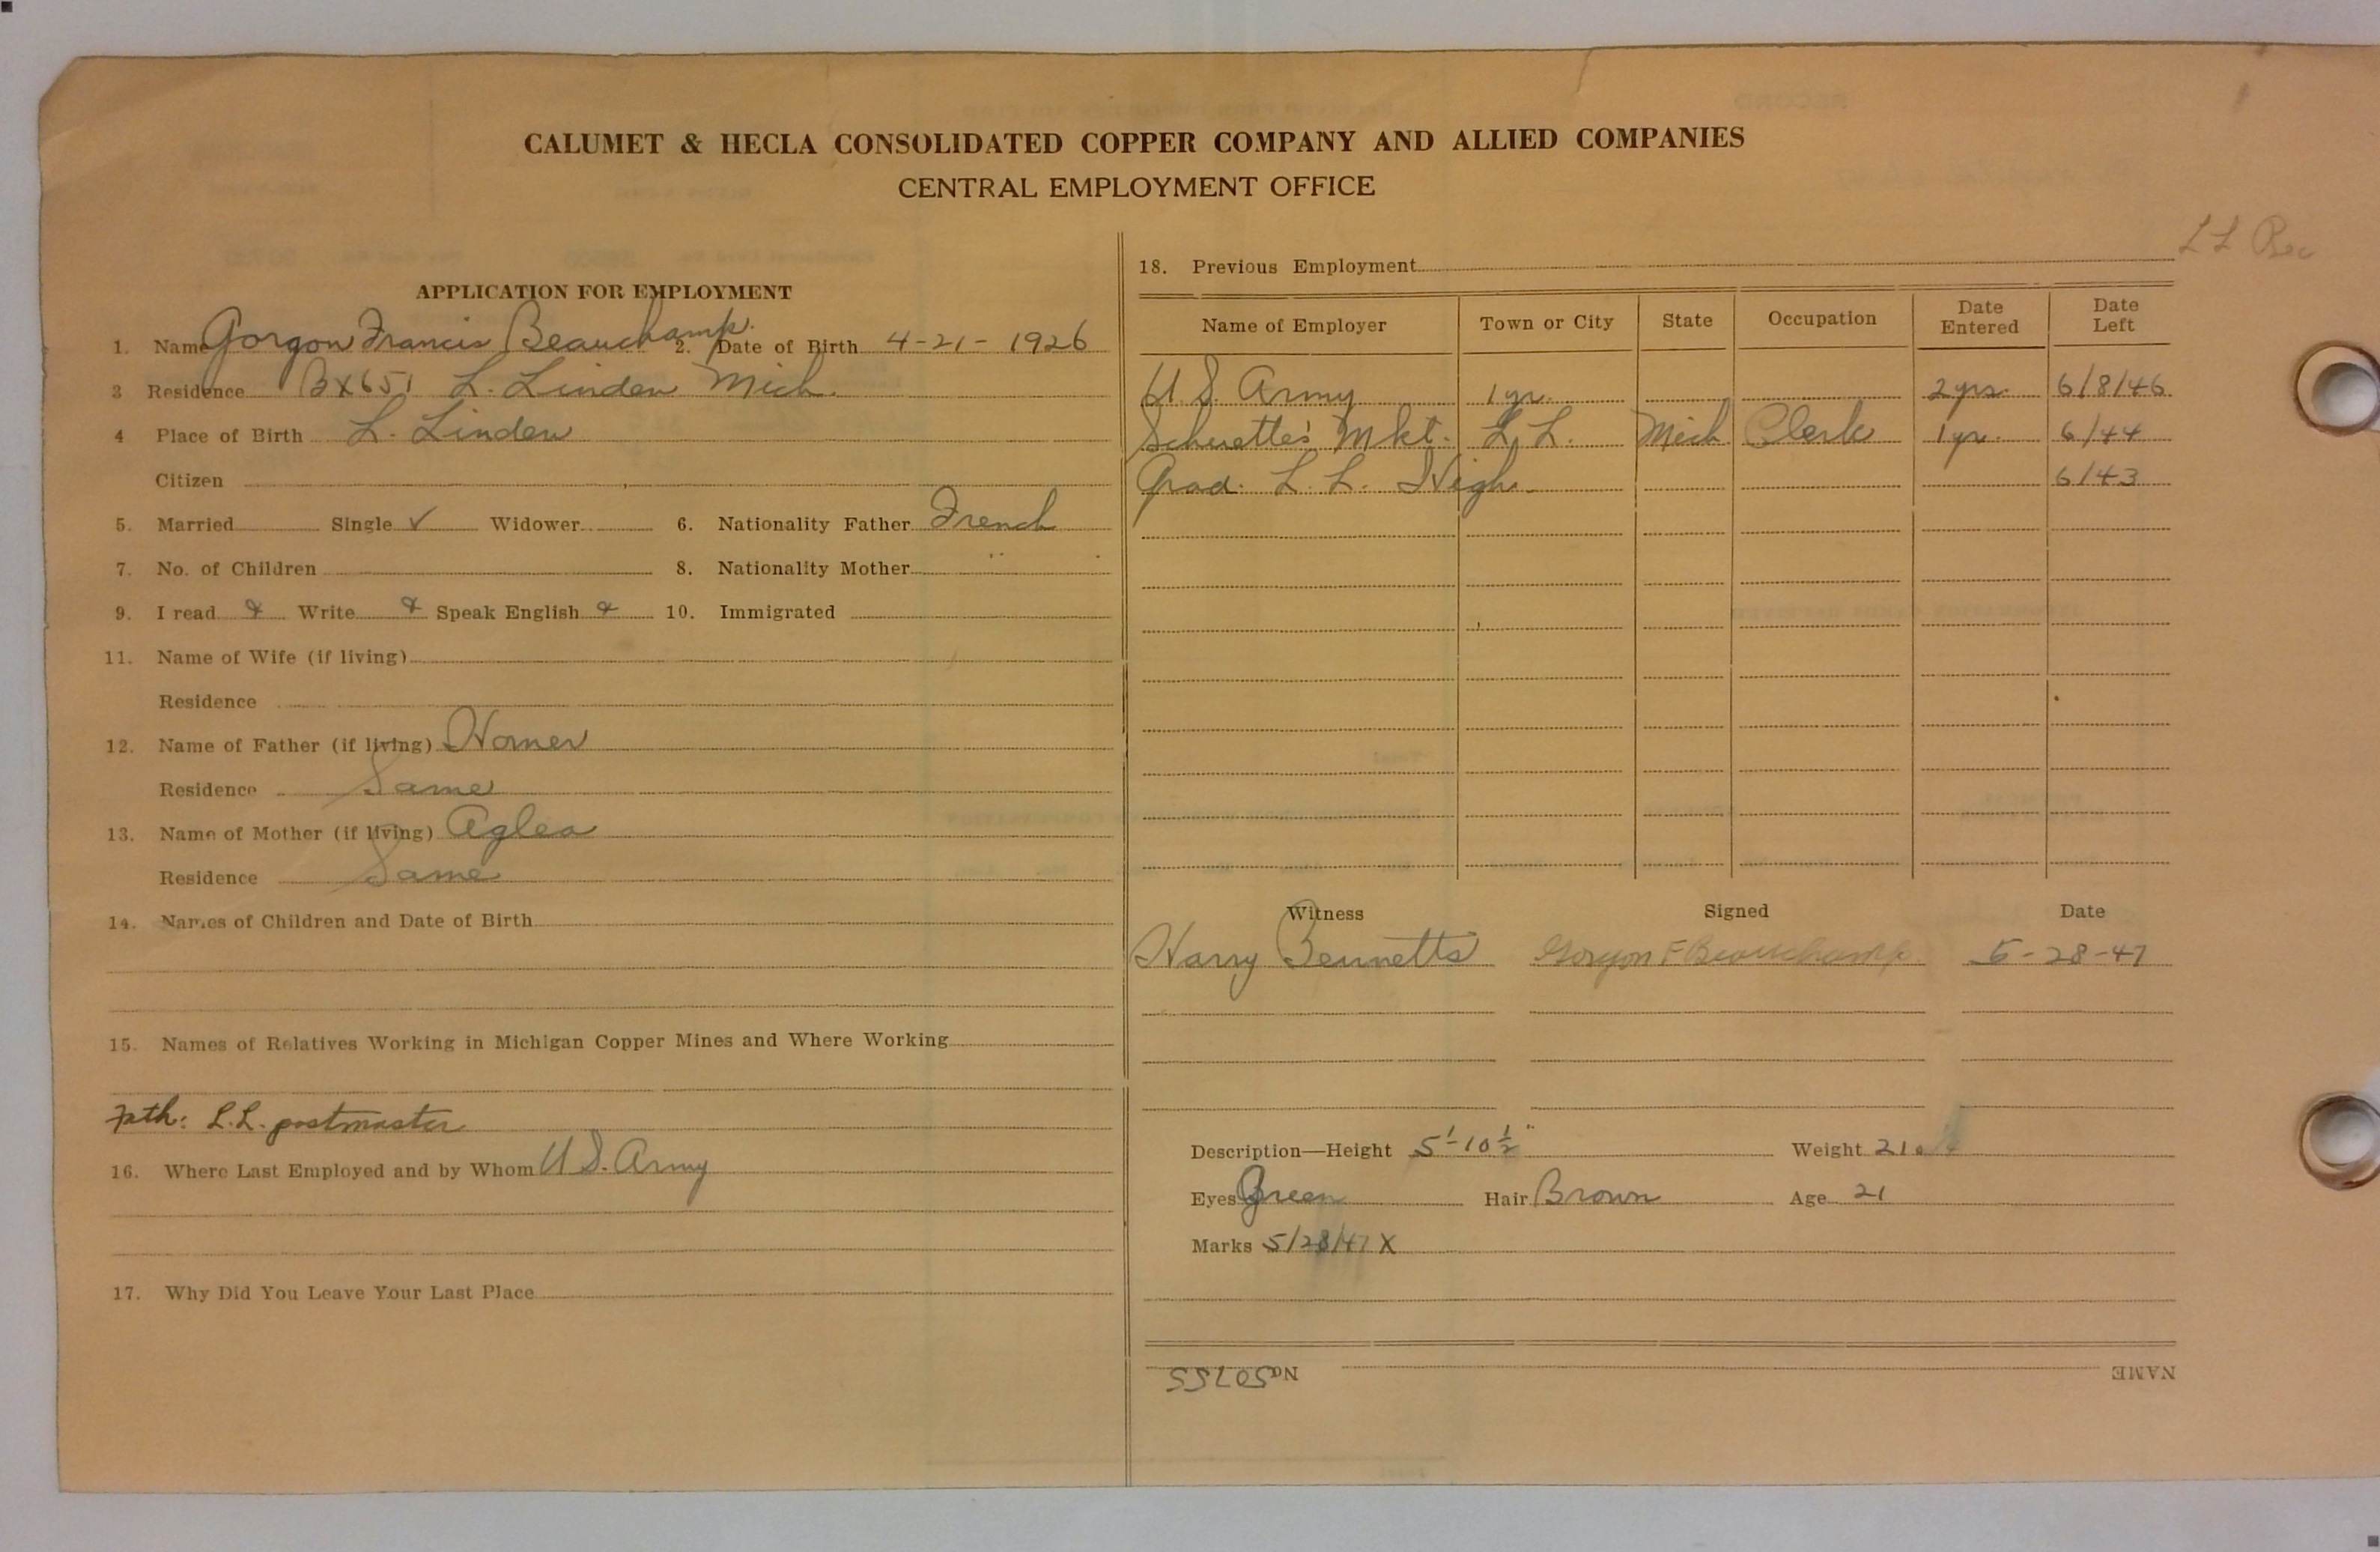 CALUMET & HECLA CONSOLIDATED COPPER COMPANY AND ALLIED COMPANIES
CENTRAL EMPLOYMENT OFFICE
L L Rec
APPLICATION FOR EMPLOYMENT
1. Name Gorgon Francis Beauchamp. 2. Date of Birth 4-21-1926
3 Residence BX651 L. Linden Mich.
4 Place of Birth L. Linden
Citizen
5. Married Single ✓ Widower 6. Nationality Father French
7. No. of Children 8. Nationality Mother "
9. I read Write Speak English 10. Immigrated
11. Name of Wife (if living)
Residence
12. Name of Father (if living) Homer
Residence Same
13. Name of Mother (if living) Aglea
Residence Same
14. Names of Children and Date of Birth
15. Names of Relatives Working in Michigan Copper Mines and Where Working
Fath: L.L. postmaster
16. Where Last Employed and by Whom U S. Army
17. Why Did You Leave Your Last Place
18. Previous Employment
Name of Employer Town or City State Occupation Date Entered Date Left
U. S. Army 1 yr. 2 yrs. 6/8/46
Schuette's Mkt. L. L. Mich Clerk 1 yr. 6/44
Grad. L. L. High. 6/43
Witness Signed Date
Harry Bennetts Gorgon F Beauchamp. 5-28-47
Description—Height 5'-10½" Weight 210
Eyes Green Hair Brown Age 21
Marks 5/28/47 X
NAME No 50755